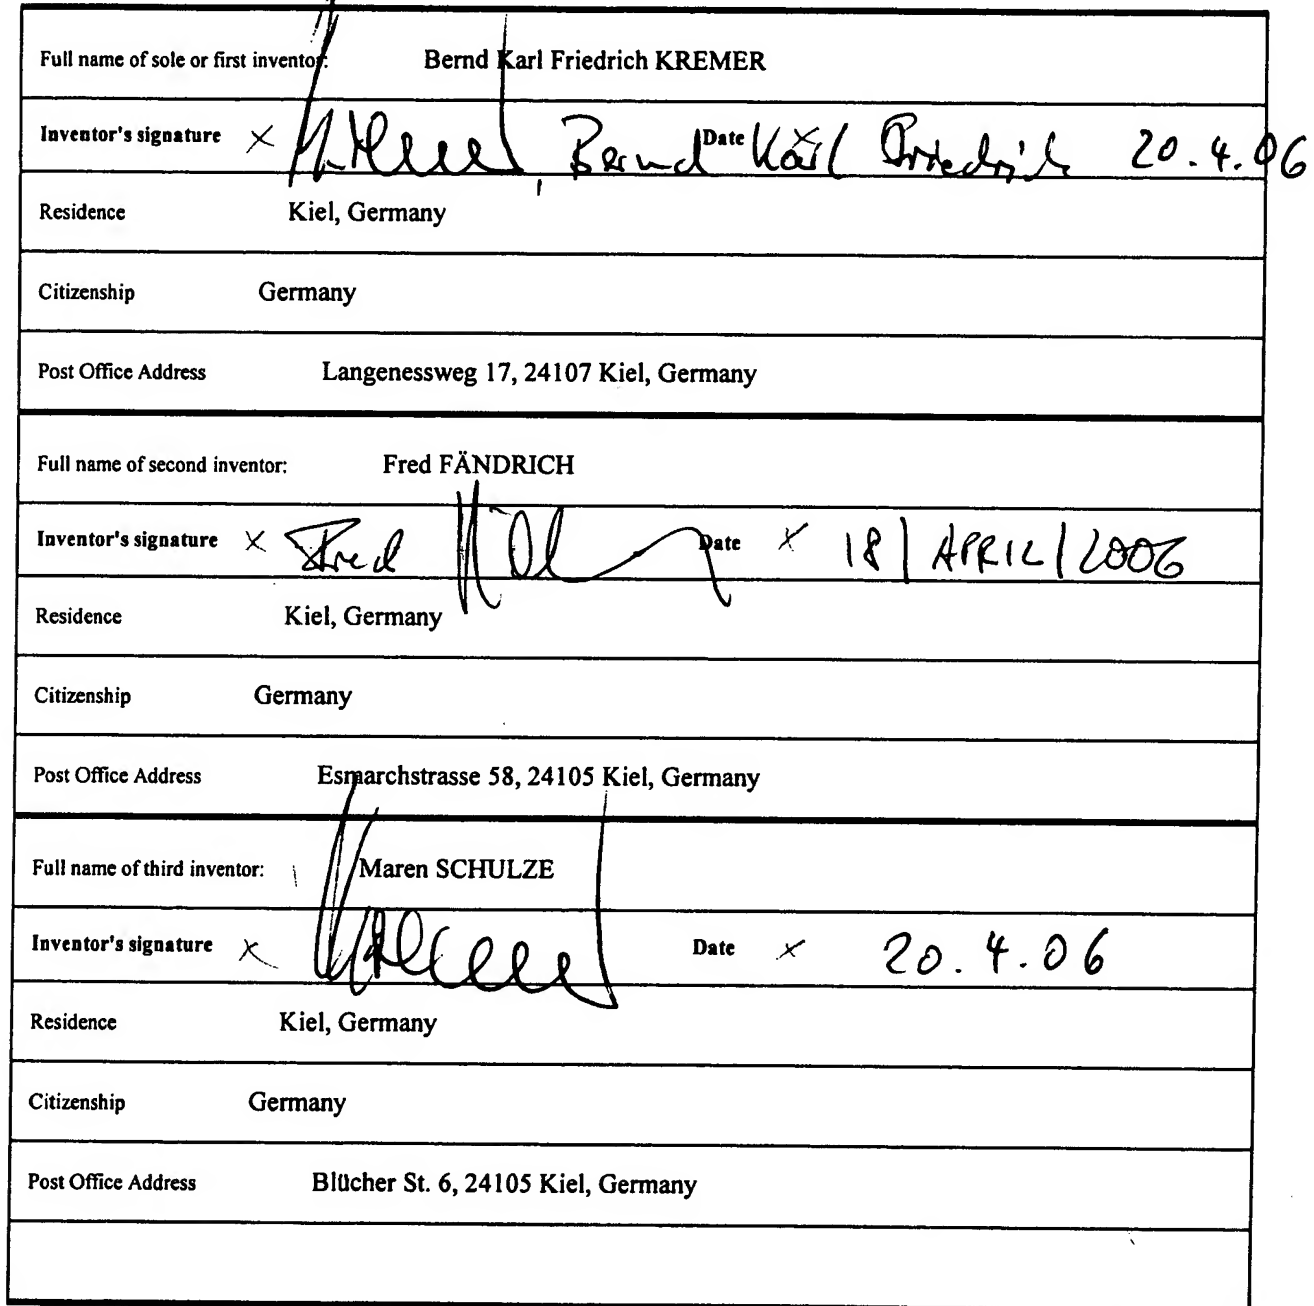 Full name of sole or first inventor: Bernd Karl Friedrich KREMER
Inventor's signature × , Bernd Date × Karl Friedrich 20.4.06
Residence Kiel, Germany
Citizenship Germany
Post Office Address Langenessweg 17, 24107 Kiel, Germany
Full name of second inventor: Fred FÄNDRICH
Inventor's signature × Fred Date × 18/APRIL/2006
Residence Kiel, Germany
Citizenship Germany
Post Office Address Esmarchstrasse 58, 24105 Kiel, Germany
Full name of third inventor: Maren SCHULZE
Inventor's signature × Date × 20.4.06
Residence Kiel, Germany
Citizenship Germany
Post Office Address Blücher St. 6, 24105 Kiel, Germany